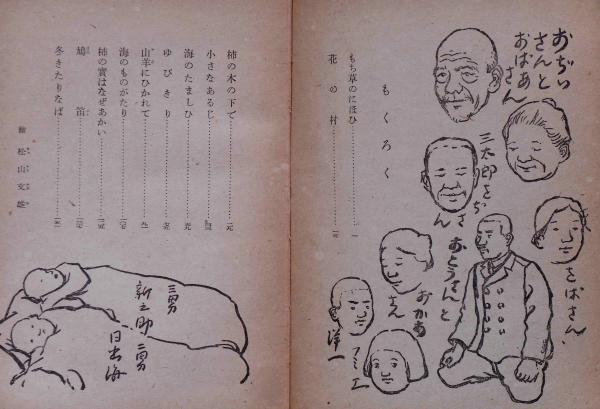 おぢい
さんと
おばあ
さん
三太郎をぢ
さん
をばさん
おとうさんと
おかあ
さん
洋一
フミエ
もくろく
もち草のにほひ
花の村
柿の木の下で
小さなあるじ
海のたましひ
ゆびきり
山羊にひかれて
海のものがたり
柿の實はなぜあかい
鳩笛
冬きたりなば
繪 松山文雄
三男
新之助
二男
日出海